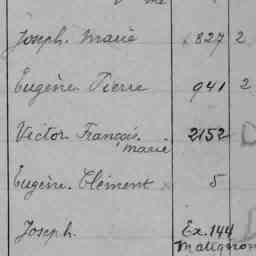 Joseph. Marie 827 2
Eugène. Pierre 941 2
Victor. François. 2152
Marie
Eugène. Clément 5
Joseph. Ex. 144
Matignon